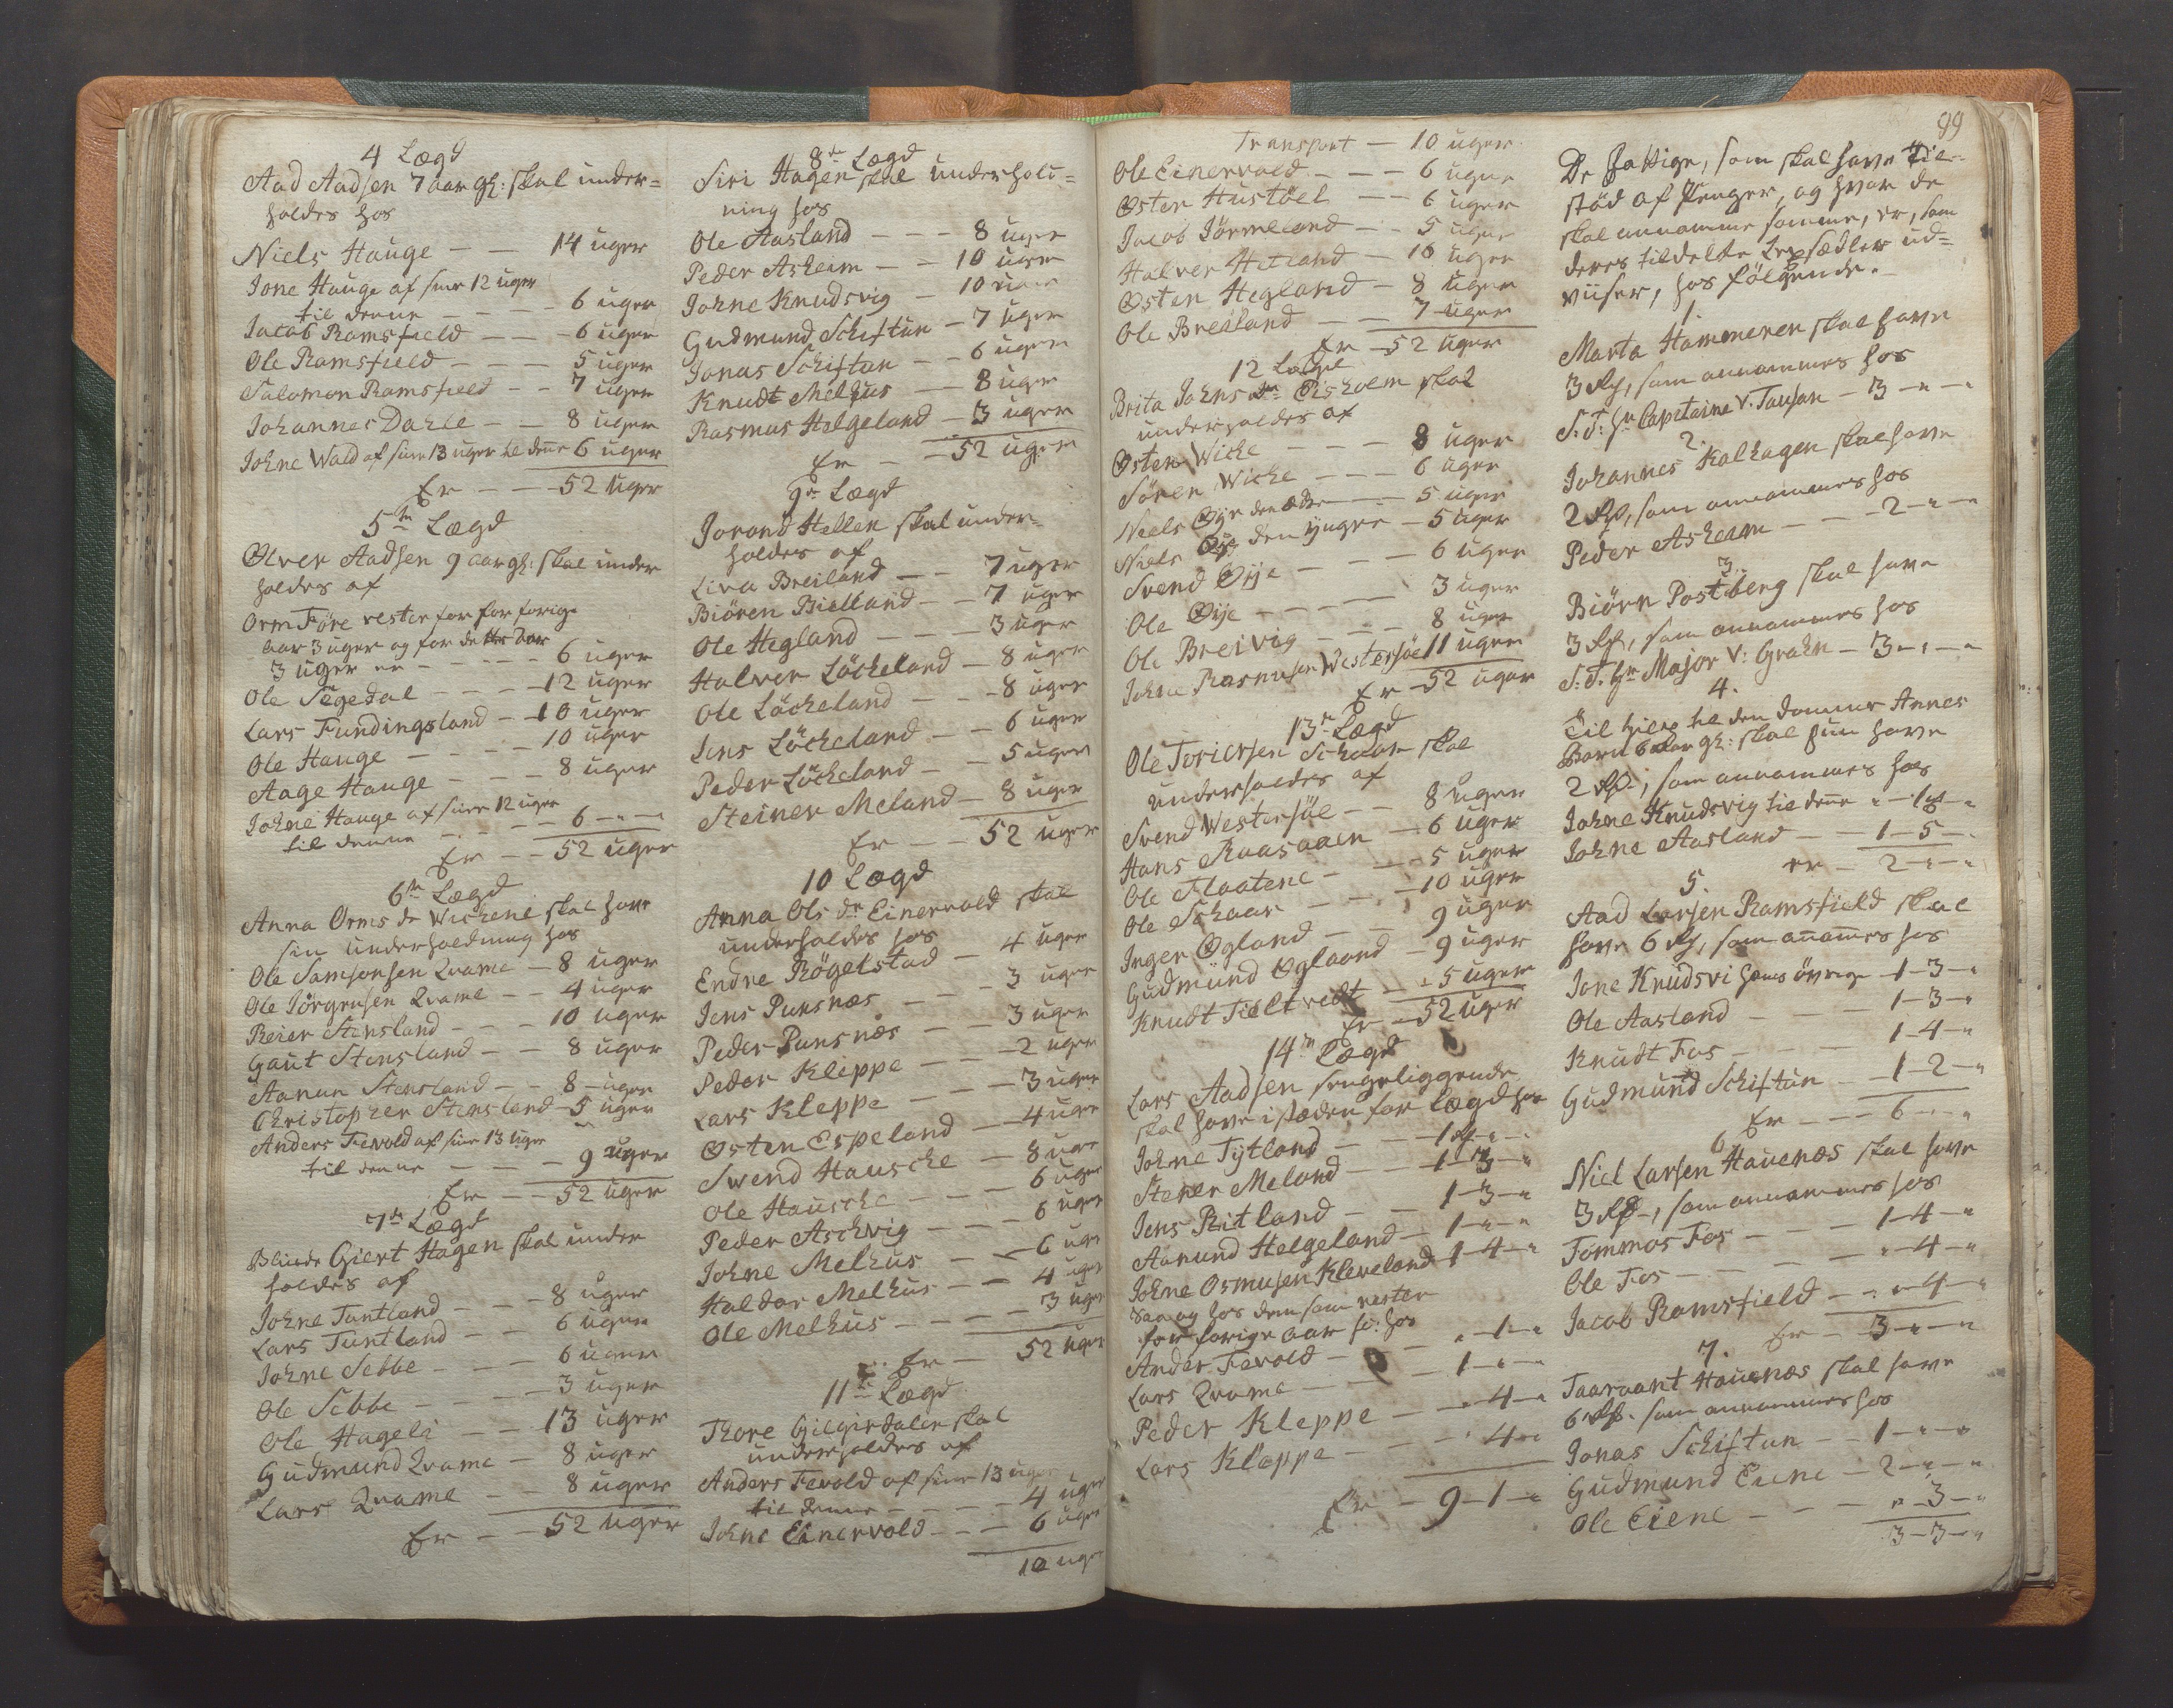 4 Lægd
Aad Aadsen 7 aar gl: skal under=
holdes hos
Niels Hauge — — 14 uger
Jone Hauge af sine 12 uger
til denne — — — — 6 uger
Jacob Ramsfield — — — 6 uger
Ole Ramsfield — — — 5 uger
Salomon Ramsfield — — 7 uger
Johannes Dahle — — 8 uger
Johne Wald af sine 13 uger til deñe 6 uger
Er — — — 52 uger
5te Lægd
Ølver Aadsen 9 aar gl: skal under
holdes af
Orm Føre rester for forrige
aar 3 uger og for dette aar
3 uger er — — — — 6 uger
Ole Segedal — — — 12 uger
Lars Fundingsland — 10 uger
Ole Hauge — — — 10 uger
Aage Hauge — — — 8 uger
Johne Hauge af sine 12 uger
til denne — — — 6 — " —
Er — — 52 uger
6te Lægd
Anna Orms dr Wichene skal have
sin underholdning hos
Ole Samsonsen Qvame — 8 uger
Ole Jörgensen Qvame — 4 uger
Reier Stensland — — — 10 uger
Gaut Stensland — — 8 uger
Aanun Stensland — — 8 uger
Christopher Stensland — 5 uger
Anders Tevold af sine 13 uger
til denne — — — 9 uger
Er — — 52 uger
7de Lægd
Blinde Giert Hagen skal under
holdes af
Johne Tuntland — — 8 uger
Lars Tuntland — — 6 uger
Johne Sebbe — — — 6 uger
Ole Sebbe — — — 3 uger
Ole Hageli — — 13 uger
Gudmund Qvame — 8 uger
Lars Qvame — — 8 uger
Er — — 52 uger
8de Lægd
Siri Hagen skal underhold=
ning hos
Ole Aasland — — — 8 uger
Peder Asheim — — 10 uger
Johne Knudsvig — 10 uger
Gudmund Schiftun — 7 uger
Jonas Schiftun — — 6 uger
Knudt Melhus — — 8 uger
Rasmus Helgeland — 3 uger
Er — — 52 uger
9de Lægd
Jorand Hellen skal under=
holdes af
Liva Breiland — — 7 uger
Biören Bielland — — 7 uger
Ole Hegland — — 3 uger
Halver Löcheland — 8 uger
Ole Löcheland — — 8 uger
Jens Löcheland — — 6 uger
Peder Löcheland — — 5 uger
Steiner Meland — 8 uger
Er — — 52 uger
10 Lægd
Anna Ols dr Einervold skal
underholdes hos
Endre Rögelstad — 4 uger
Jens Punsnæs — — — 3 uger
Peder Punsnæs — — 3 uger
Peder Kleppe — — — 2 uger
Lars Kleppe — — — 3 uger
Østen Espeland — — 4 uger
Swend Hausche — 8 uger
Ole Hausche — — — 6 uger
Peder Aschvig — — — 6 uger
Johne Melhus — — 6 uger
Haldor Melhus — — 4 uger
Ole Melhus — — — 3 uger
Er — 52 uger
11te Lægd
Thore Gilgirdalen skal
underholdes af
Anders Tevold af sine 13 uger
til denne — — — — 4 uger
Johne Einervold — — 6 uger
10 uger
99
Transport — 10 uger
Ole Einervold — — — 6 uger
Østen Hustöel — — 6 uger
Jacob Jörmeland — — 5 uger
Halver Hetland — 10 uger
Østen Hegland — 8 uger
Ole Breiland — — 7 uger
Er — 52 uger
12 Lægd
Brita Johns dr Eisholm skal
underholdes af
Østen Wiche — — — 8 uger
Sören Wiche — — — 6 uger
Niels Øye den Ældre — — 5 uger
Niels Øye den yngre — 5 uger
Svend Øye — — — 6 uger
Ole Øye — — — — 3 uger
Ole Breivig — — — 8 uger
Johne Rasmusen Westersöe 11 uger
Er — 52 uger
13de Lægd
Ole Toriersen Schaar skal
underholdes af
Svend Westersöe — — 8 uger
Hans Raasaaen — 6 uger
Ole Flaatene — — — 5 uger
Ole Schaar — — — 10 uger
Inger Øgland — — — 9 uger
Gudmund Øglaand — 9 uger
Knudt Tveltvedt — — 5 uger
Er — 52 uger
14de Lægd
Lars Aadsen sengeliggende
skal have istæden for Lægd hos
Johne Tytland — — 1 — " —
Stener Meland — — 1 — 3 — "
Jens Ritland — — 1 — 3 — "
Aanund Helgeland — 1 — " — "
Johne Osmusen Kleveland 1 — 4 — "
Saa og hos dem som rester
for forige aar sc: hos
Ander Tevold — — " — 1 — "
Lars Qvame — — — 1 — " — "
Peder Kleppe — — " 4 — "
Lars Kleppe — — — " 4 — "
Er — 9 — 1 — "
De Fattige, som skal have Til=
stöd af Penger, og hvor de
skal annamme samme, er, som
deres tildelte Lægsedler ud=
viiser, hos følgende.
1.
Marta Hammeren skal have
3 Rdr, som annammes hos
S: T: Hr Capitaine v. Tausan — 3 — " — "
2.
Johannes Kalhagen skal have
2 Rdr, som annammes hos
Peder Asheim — — — 2 — " — "
3.
Biörn Postberg skal have
3 Rdr, som annammes hos
S: T: Hr Major v: Grahn — 3 — " — "
4.
Til hielp til den dommer Annes
Barn 6 aar gl: skal hun have
2 Rdr, som annammes hos
Johne Knudsvig til deñe " — 1 — "
Johne Aasland — — 1 — 5 — "
er — 2 — " — "
5.
Aad Larsen Ramsfield skal
have 6 Rdr, som añam̃es hos
Jone Knudsvi hans övrige 1 — 3 — "
Ole Aasland — — — 1 — 3 — "
Knudt Fos — — — — 1 — 4 — "
Gudmund Schiftun — 1 — 2 — "
Er — — 6 — " — "
6
Niel Larsen Hauenæs skal have
3 Rdr, som annammes hos
Tommos Fos — — — 1 — 4 — "
Ole Fos — — — — " — 4 — "
Jacob Ramsfield — " — 4 — "
Er — 3 — " — "
7.
Taaraant Hauenæs skal have
6 Rdr. som annammes hos
Jonas Schiftun — — 1 — " — "
Gudmund Eiene — 2 — " — "
Ole Eiene — — — " — 3 — "
3 — 3 — "